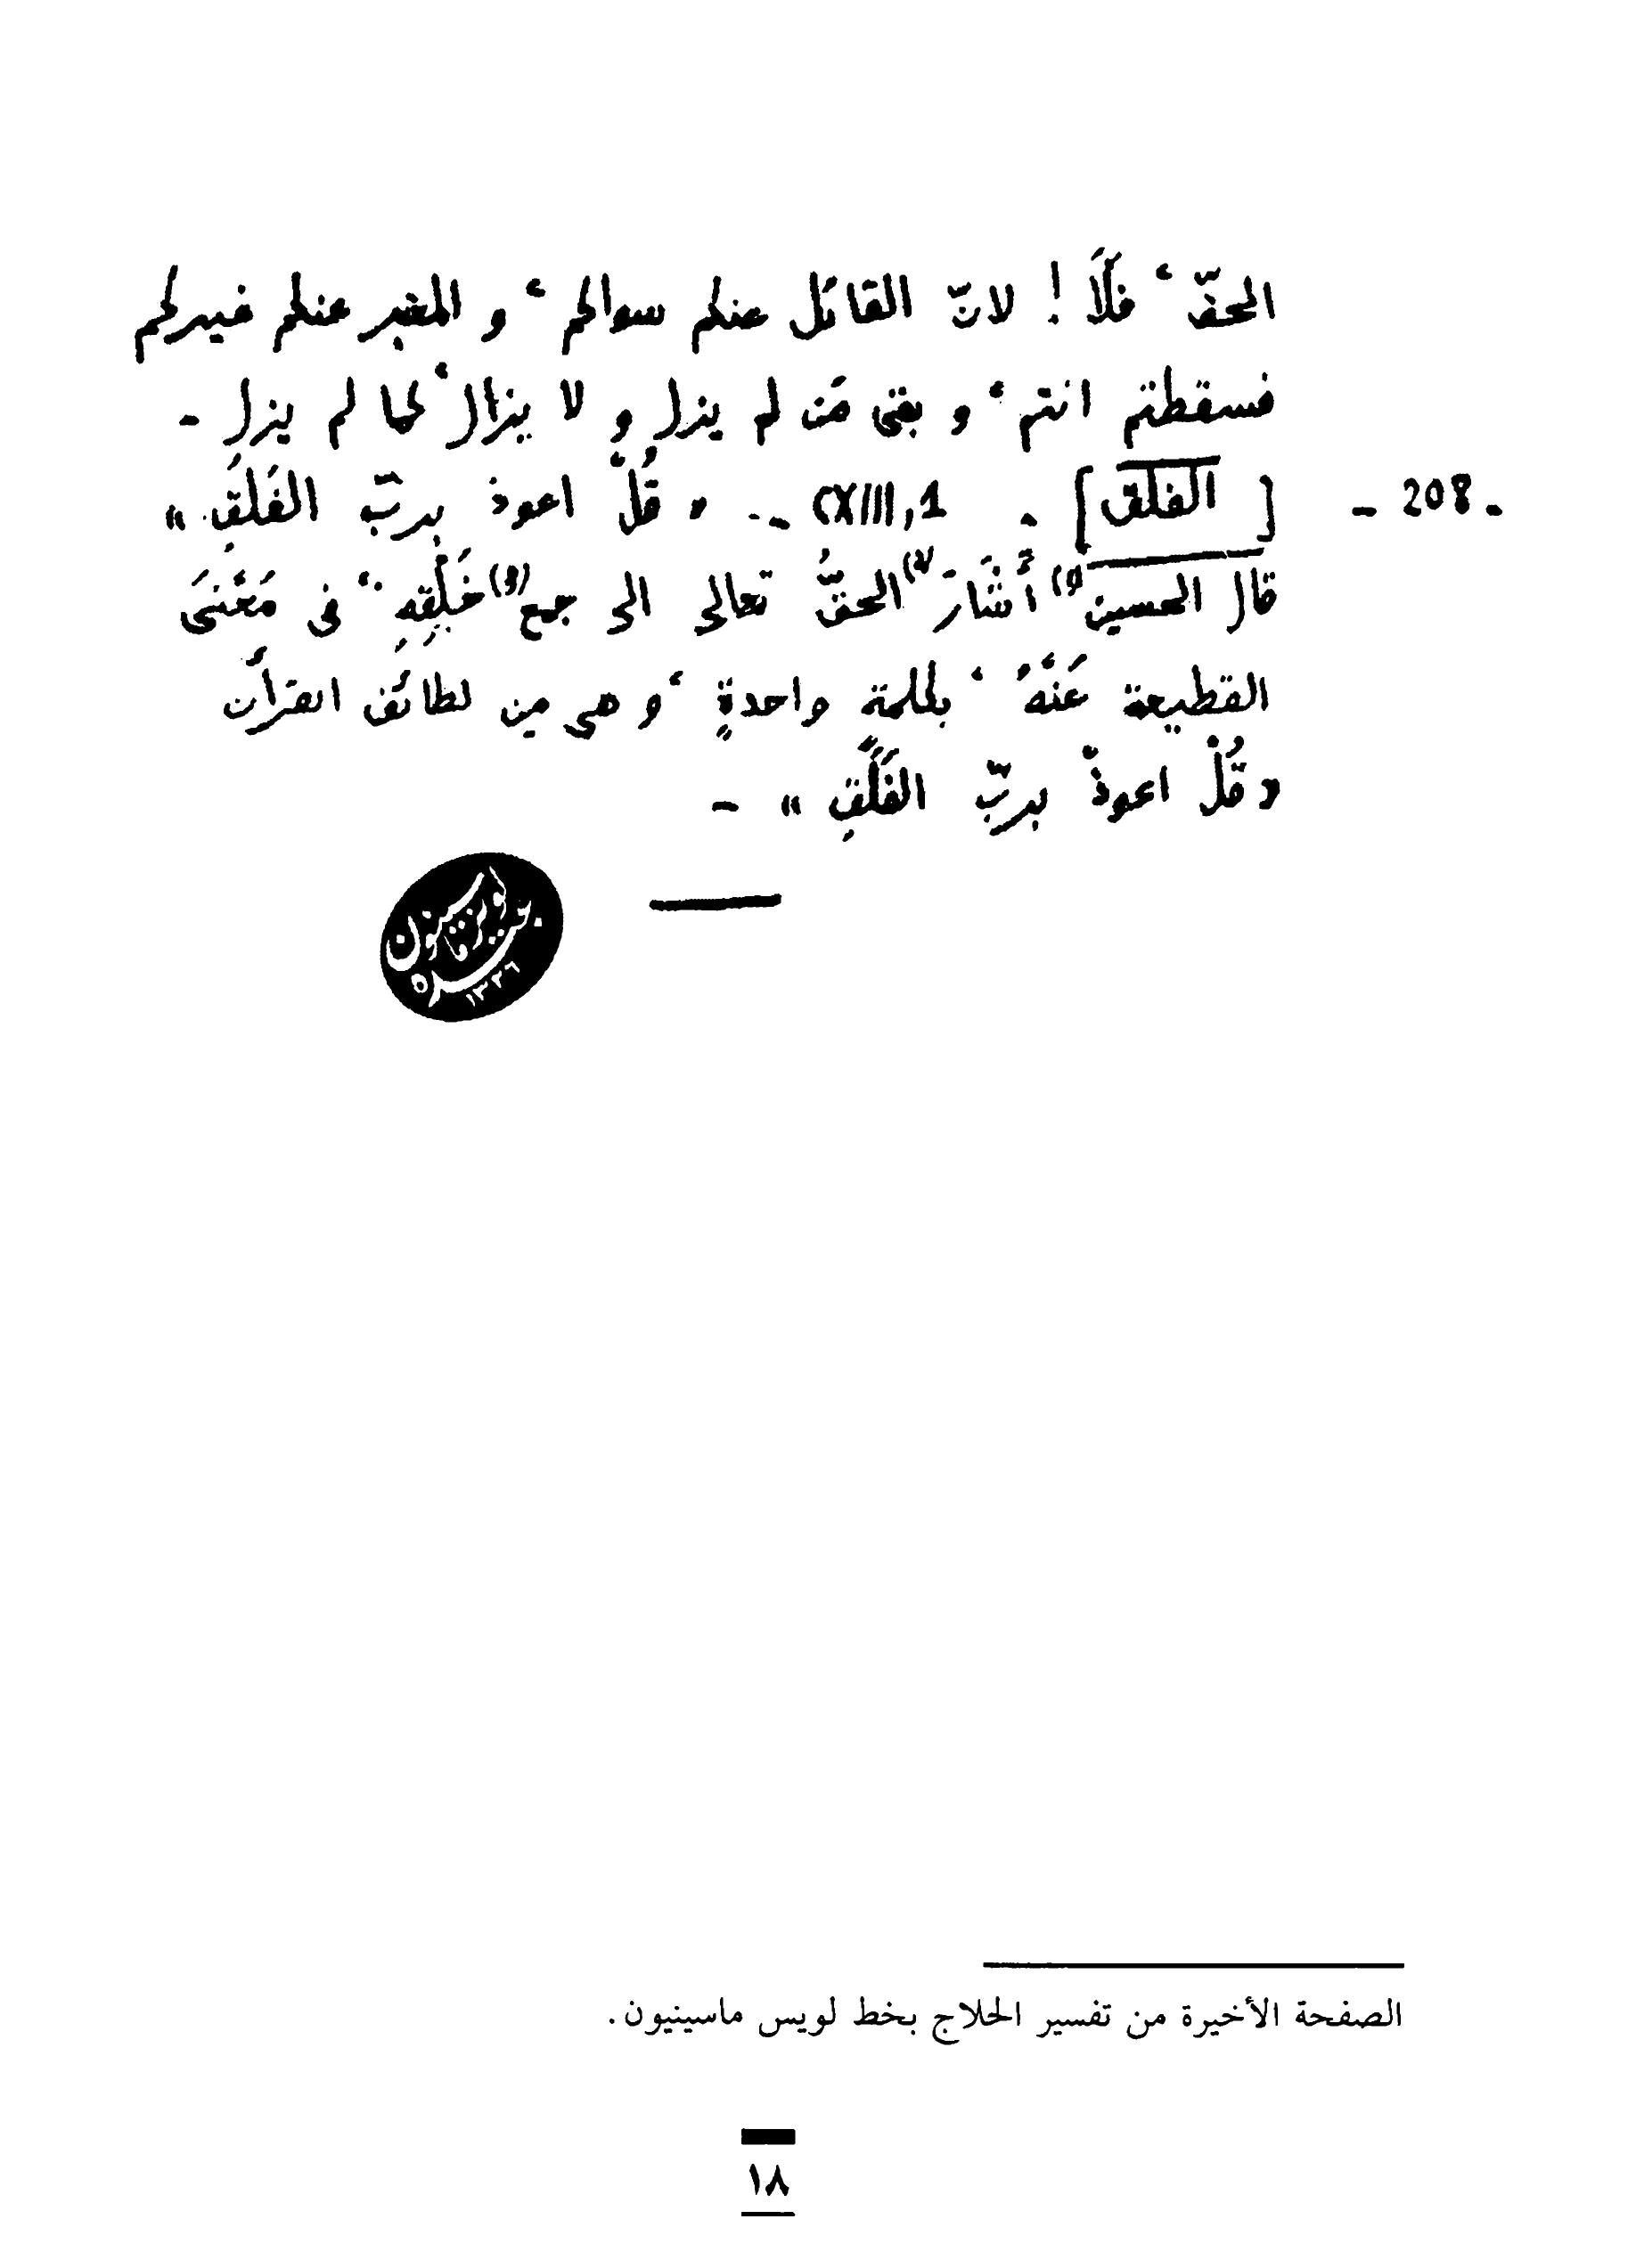 الحقّ ، فَلَا ! لانّ القائل عنكم سواكم ، و المعبر عنكم غيركم
فسقطتم انتم ، و بقى مَن لم يزل و لا يزال كما لم يزل -
- 208 - [ الفلق ] . CXIII,1 - « قُلْ اعوذ بربّ الفَلَقِ »
قال الحسين (1) أَشَارَ (2) الحقُّ تعالى الى جمع (3) خَلْقِهِ ، فى مَعْنَى
القطيعة عَنْهُ ، بكلمة واحدةٍ ، و هى من لطائف القرآن
« قُلْ اعوذُ بربّ الفَلَقِ » -
١٣٣٦
الصفحة الأخيرة من تفسير الحلاج بخط لويس ماسينيون.
١٨